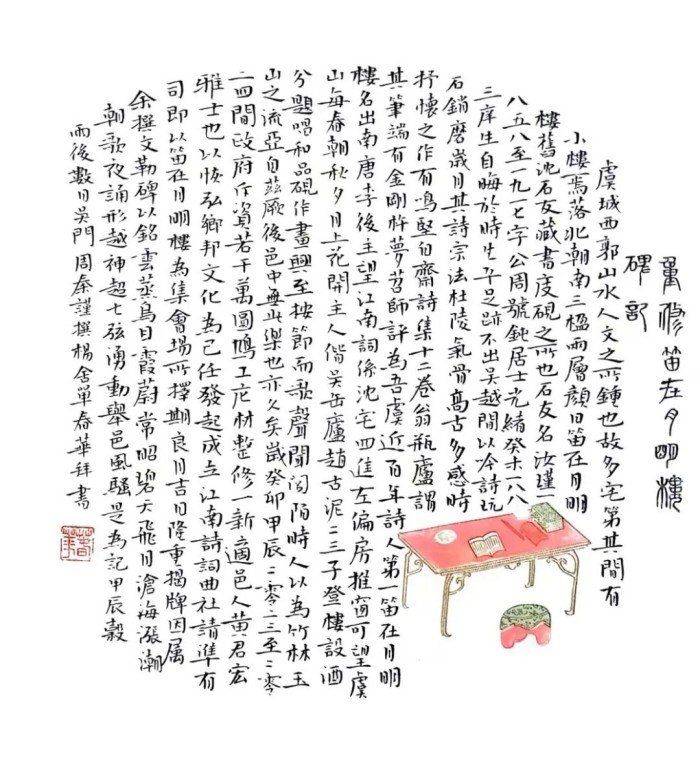 重修笛在月明樓
碑記
虞城西郭山水人文之所鍾也故多宅第其間有
小樓焉落北朝南三楹兩層顏曰笛在月明
樓舊沈石友藏書庋硯之所也石友名汝瑾一
八五八至一九一七字公周號鈍居士光緒癸未一八八
三庠生自晦於時生平足跡不出吳越間以吟詩玩
石銷磨歲月其詩宗法杜陵氣骨高古多感時
抒懷之作有鳴堅白齋詩集十二卷翁瓶廬謂
其筆端有金剛杵夢苕師評為吾虞近百年詩人第一笛在月明
樓名出南唐李後主望江南詞係沈宅四進左偏房推窗可望虞
山每春朝秋夕月上花開主人偕吳缶廬趙古泥二三子登樓設酒
分題唱和品硯作畫興至按節而歌聲聞閭陌時人以為竹林玉
山之流亞自茲厥後邑中無此樂也亦久矣歲癸卯甲辰二零二三至二零
二四間政府斥資若干萬圓鳩工庀材整修一新適邑人黃君宏
雅士也以恢弘鄉邦文化為己任發起成立江南詩詞曲社請準有
司即以笛在月明樓為集會場所擇期良月吉日隆重揭牌因屬
余撰文勒碑以銘雲蒸鳥目霞蔚常昭碧天飛月滄海漲潮
朝歌夜誦形越神超七弦湧動舉邑風騷是為記甲辰穀
雨後數日吳門周秦謹撰楊舍單春華拜書